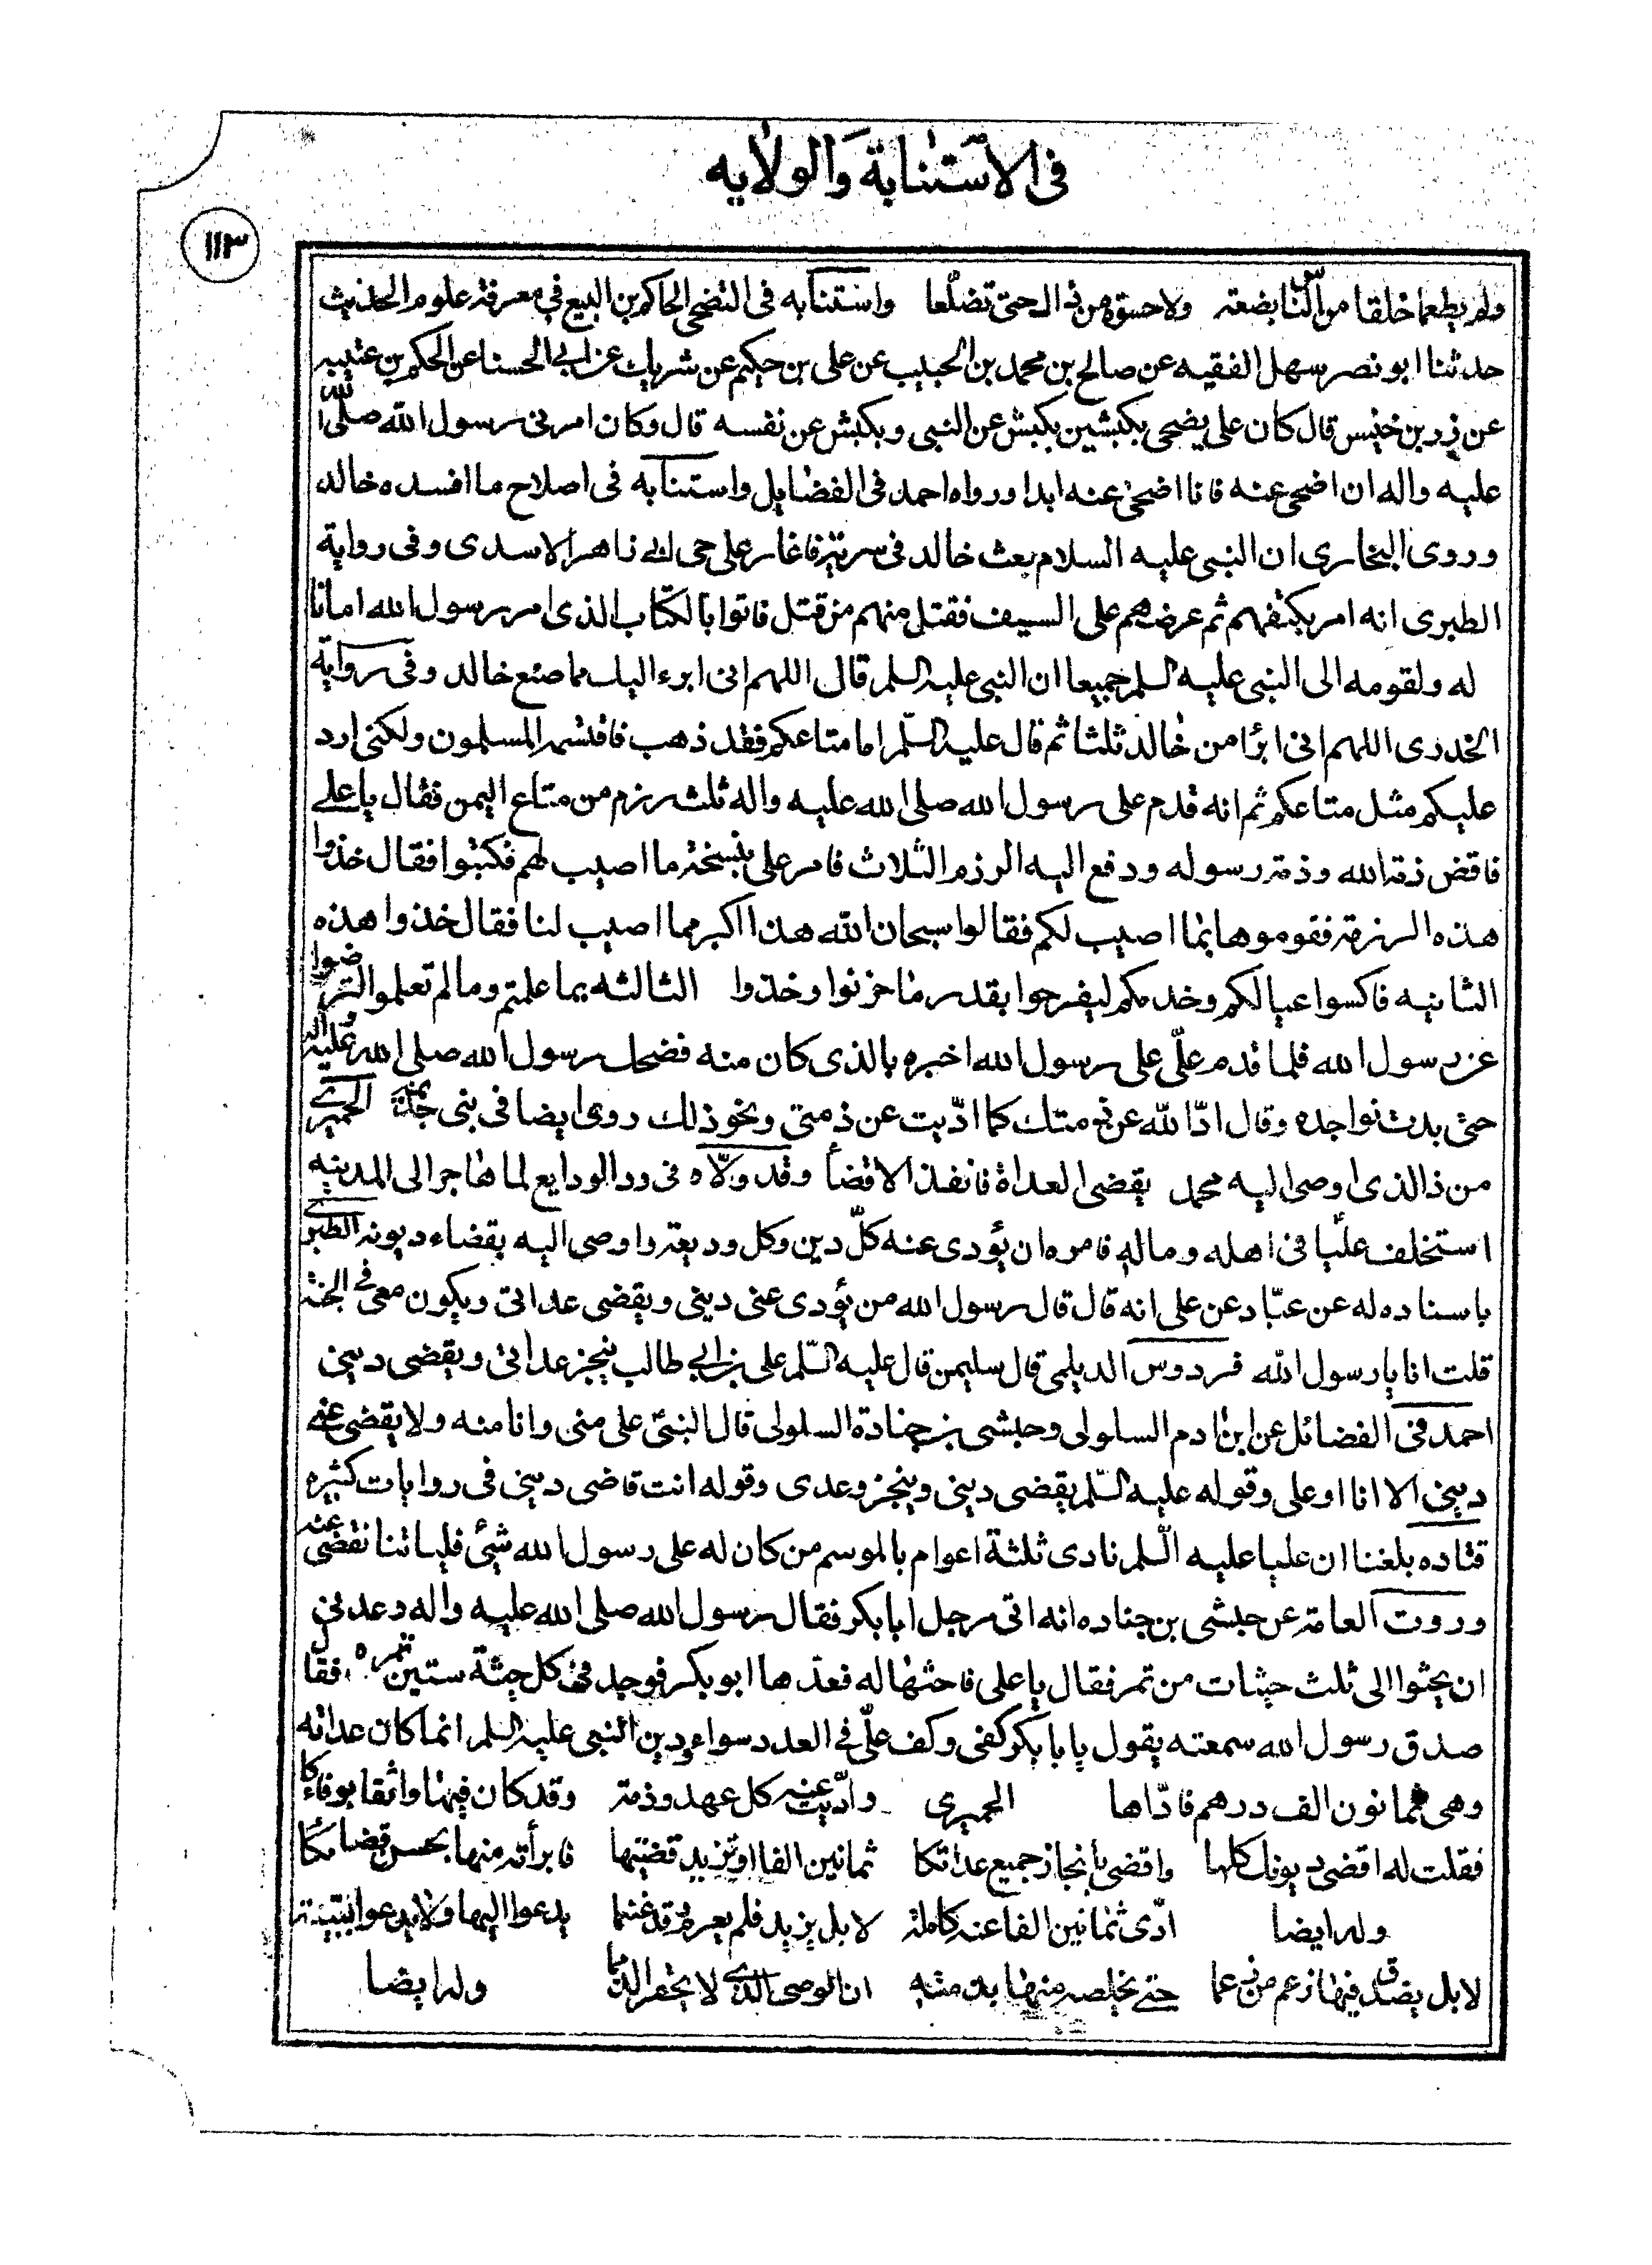 فی الاستنابة والولایه
۱۱۳
ولم یطعما خلقا من الناس بضعته ولا حسوة من ذاك حتی تضلعا واستنابه فی التضحی الحاکم بن البیع فی معرفة علوم الحدیث
حدثنا ابو نصر سهل الفقیه عن صالح بن محمد بن الحبیب عن علی بن حکیم عن شریك عن ابی الحسنا عن الحکم بن عتیبه
عن زر بن خنیس قال کان علی یضحی بکبشین بکبش عن النبی و بکبش عن نفسه قال وکان امرنی رسول الله صلی الله
علیه واله ان اضحی عنه فانا اضحی عنه ابدا ورواه احمد فی الفضایل واستنابه فی اصلاح ما افسده خالد
وروی البخاری ان النبی علیه السلام بعث خالد فی سریة فاغار علی حی ابی زاهر الاسدی وفی روایة
الطبری انه امر بکتفهم ثم عرضهم علی السیف فقتل منهم من قتل فاتوا بالکتاب الذی امر رسول الله امانا
له ولقومه الی النبی علیه السلم جمیعا ان النبی علیه السلم قال اللهم انی ابرء الیك مما صنع خالد وفی روایة
الخدری اللهم انی ابرأ من خالد ثلثا ثم قال علیه السلم اما متاعکم فقد ذهب فاقتسمه المسلمون ولکنی ارد
علیکم مثل متاعکم ثم انه قدم علی رسول الله صلی الله علیه واله ثلث رزم من متاع الیمن فقال یا علی
فاقض ذمة الله وذمة رسوله ودفع الیه الرزم الثلاث فامر علی بنسخة ما اصیب لهم فکتبوا فقال خذوا
هذه الرزمة فقوموها بما اصیب لکم فقالوا سبحان الله هذا اکبر مما اصیب لنا فقال خذوا هذه
الثانیه فاکسوا عیالکم وخدمکم لیفرحوا بقدر ما حزنوا وخذوا الثالثه بما علمتم وما لم تعلموا لترضوا
عن رسول الله فلما قدم علی علی رسول الله اخبره بالذی کان منه فضحك رسول الله صلی الله علیه واله
حتی بدت نواجده وقال ادّا لله عن ذمتك کما ادّیت عن ذمتی ونحو ذلك روی ایضا فی بنی جذیمة الحمیری
من ذا الذی اوصی الیه محمد یقضی العداة فانفذ الاقضأ وقد ولّاه فی رد الودایع لما هاجر الی المدینه
استخلف علیّا فی اهله وماله فامره ان یؤدی عنه کلّ دین وکل ودیعة واوصی الیه بقضاء دیونه الطبری
باسناده له عن عبّاد عن علی انه قال قال رسول الله من یؤدی عنی دینی ویقضی عداتی ویکون معی فی الجنة
قلت انا یا رسول الله فردوس الدیلمی قال سلیمن قال علیه السّلم علی بن ابی طالب ینجز عداتی ویقضی دینی
احمد فی الفضائل عن ابن ادم السلولی وحبشی بن جنادة السلولی قال النبیّ علی منی وانا منه ولا یقضی عنی
دینی الا انا او علی وقوله علیه السّلم یقضی دینی وینجز وعدی وقوله انت قاضی دینی فی روایات کثیره
قتاده بلغنا ان علیا علیه السّلم نادی ثلثة اعوام بالموسم من کان له علی رسول الله شیئ فلیاتنا نقضی عنه
وروت العامة عن حبشی بن جناده انه اتی رجل ابا بکر فقال رسول الله صلی الله علیه واله وعدنی
ان یحثوا الی ثلث حثیات من تمر فقال یا علی فاحثها له فعدّها ابو بکر فوجد فی کل حثیة ستین تمره فقال
صدق رسول الله سمعته یقول یا با بکر کفی وکف علیّ فی العدد سواء ودین النبی علیه السلم انما کان عداته
وهی ثمانون الف درهم فادّاها الحمیری وادّیت عنه کل عهد وذمة وقد کان فیها واثقا بوفاءکا
فقلت له اقضی دیونك کلها واقضی بانجاز جمیع عداتکا ثمانین الفا او تزید قضیتها فابرأته منها بحسن قضاءکا
وله ایضا ادّی ثمانین الفا عنه کاملة لا بل یزید فلم یغرم وقد غنما یدعوا الیها ولا یدعوا ببینة
لا بل یصدق فیها زعم من زعما حتی یخلصه منها بذمته ان الوصی الذی لا یخفر الذمما وله ایضا